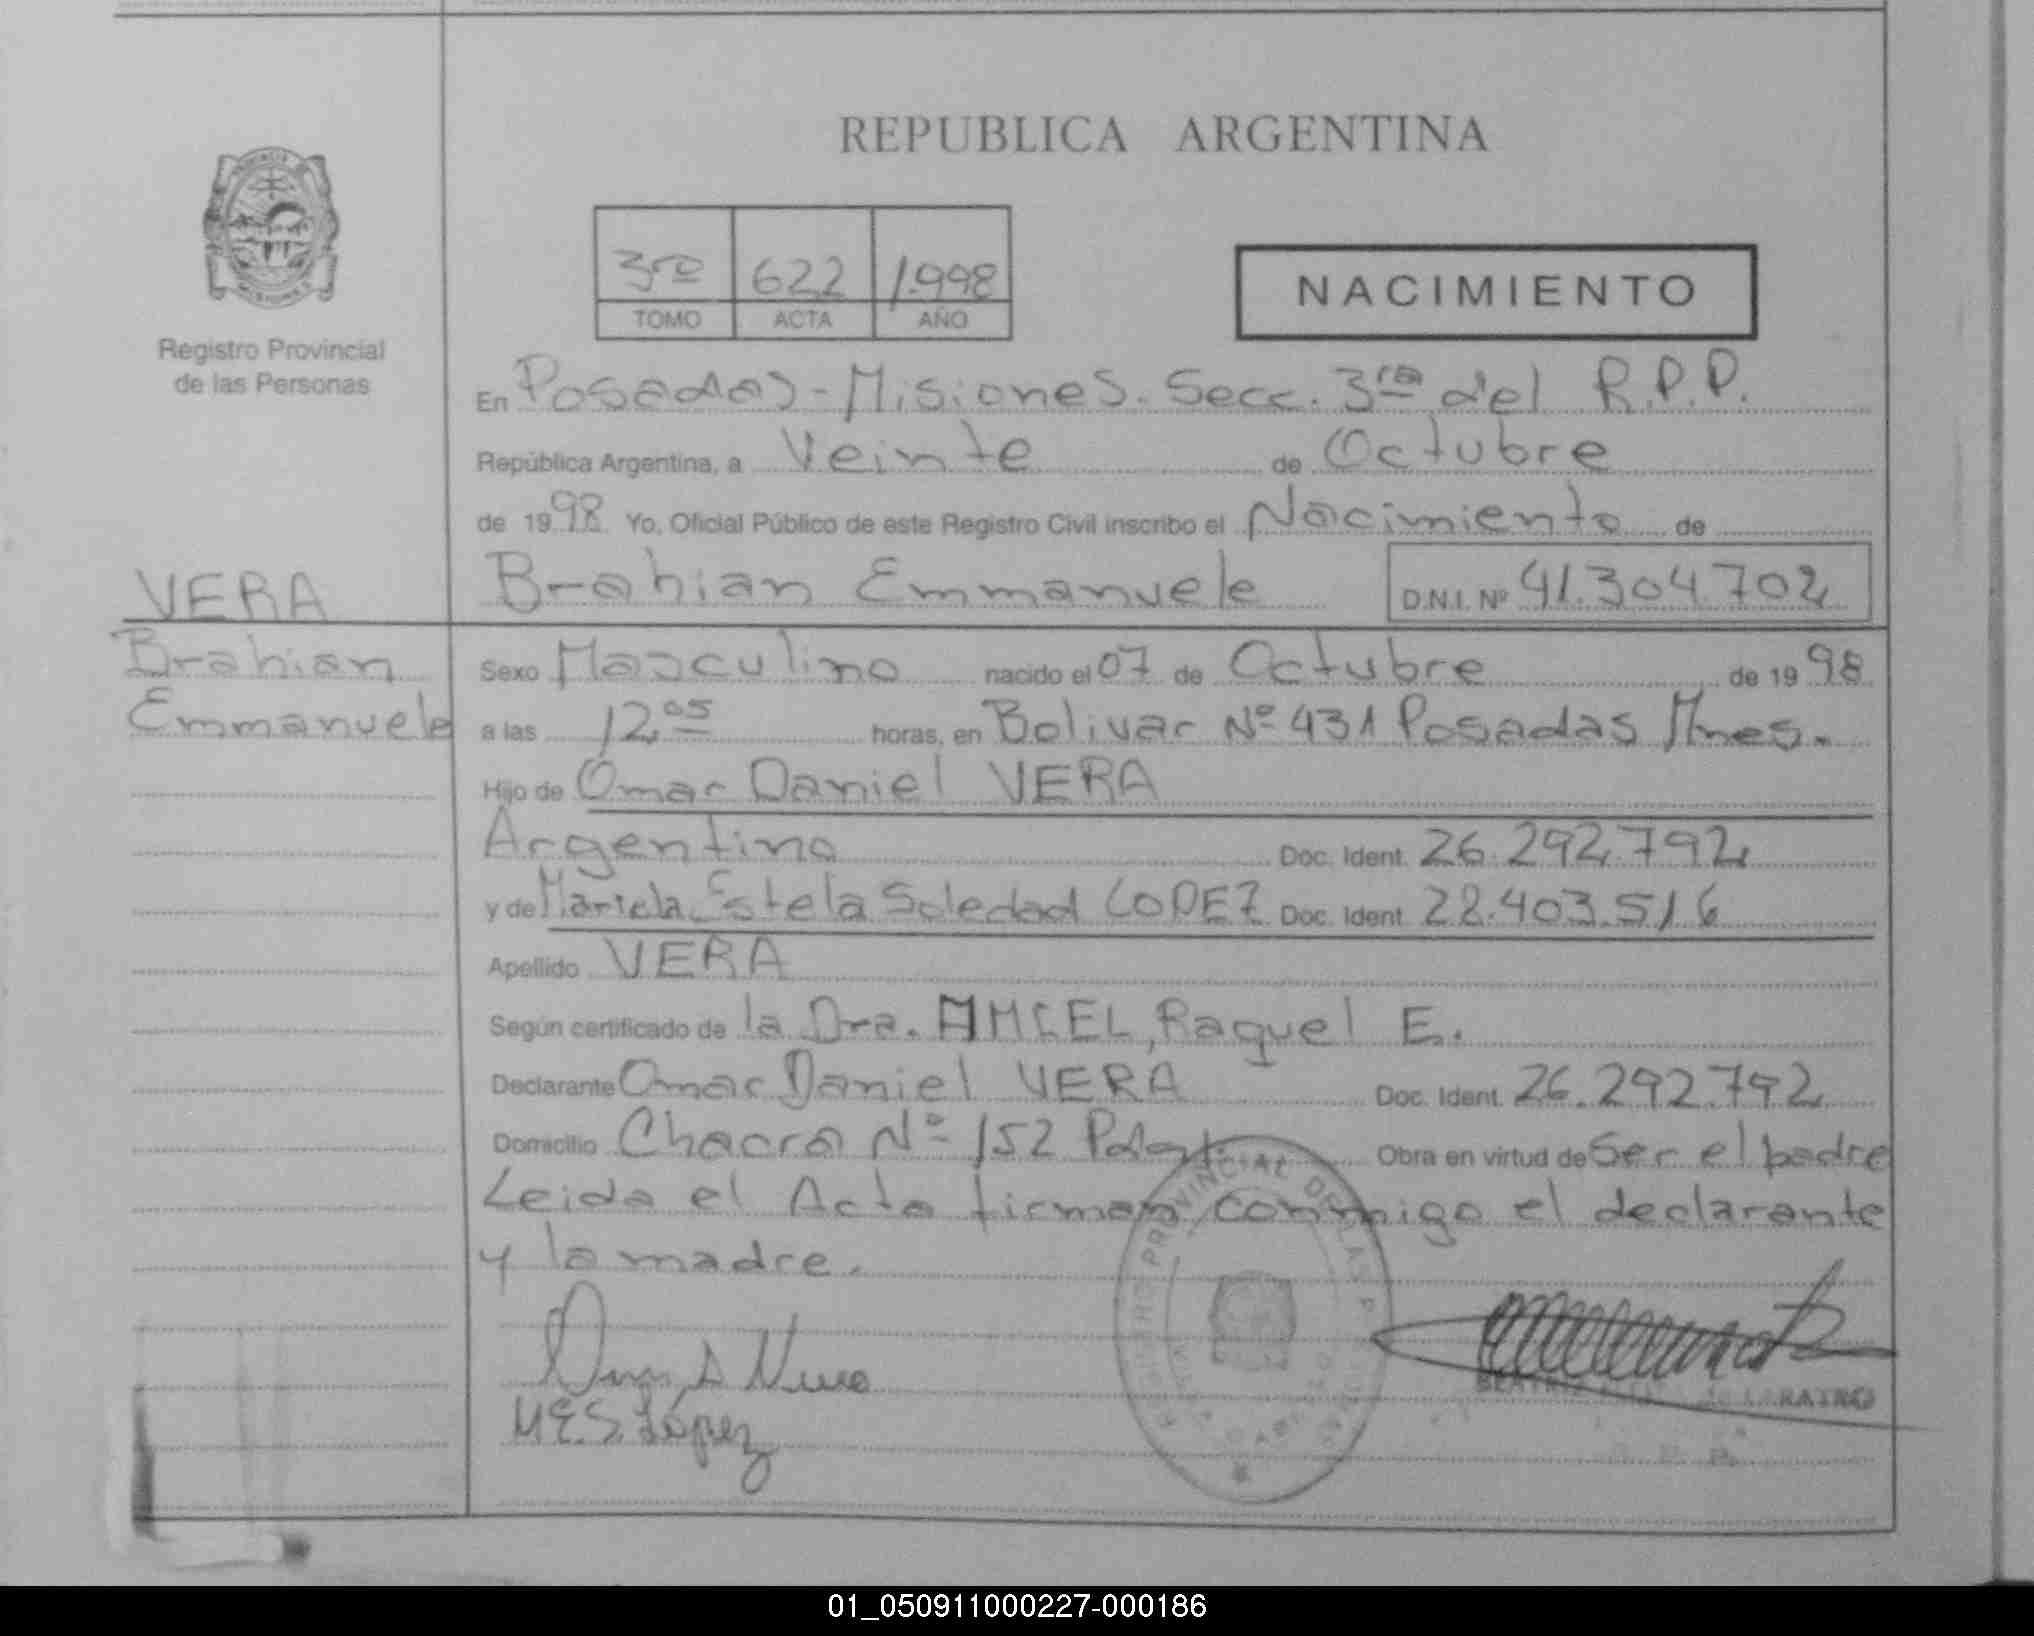 REPUBLICA ARGENTINA
3ro 622 1.998
TOMO ACTA AÑO
NACIMIENTO
Registro Provincial
de las Personas
En Posadas - Misiones. Secc. 3ra del R.P.P.
República Argentina, a Veinte de Octubre
de 1998 Yo, Oficial Público de este Registro Civil inscribo el Nacimiento de
VERA
Brahian Emmanuele D.N.I. Nº 41.304.702
Brahian
Emmanuele
Sexo Masculino nacido el 07 de Octubre de 1998
a las 12 05 horas, en Bolivar Nº 431 Posadas Mnes.
Hijo de Omar Daniel VERA
Argentino Doc. Ident. 26.292.792
y de Mariela Estela Soledad LOPEZ Doc. Ident. 22.403.516
Apellido VERA
Según certificado de la Dra. Raquel E.
Declarante Omar Daniel VERA Doc. Ident. 26.292.792
Domicilio Chacra Nº 152 Obra en virtud de Ser el padre
Leida el Acta firman conmigo el declarante
y la madre.
REGISTRO PROVINCIAL DE LAS
M.E.S. López
BEATRIZ
01_050911000227-000186